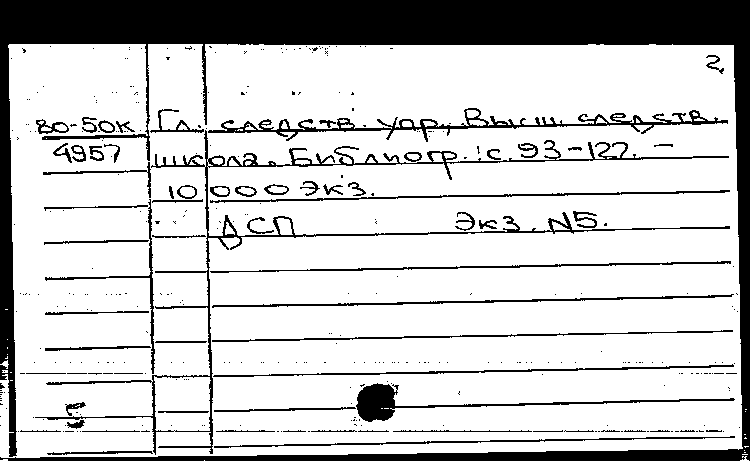 2.
80-50к Гл. следств. упр., Высш. следств.
4957 школа. Библиогр.: с. 93-127. -
10 000 экз.
ДСП Экз. N5.
5